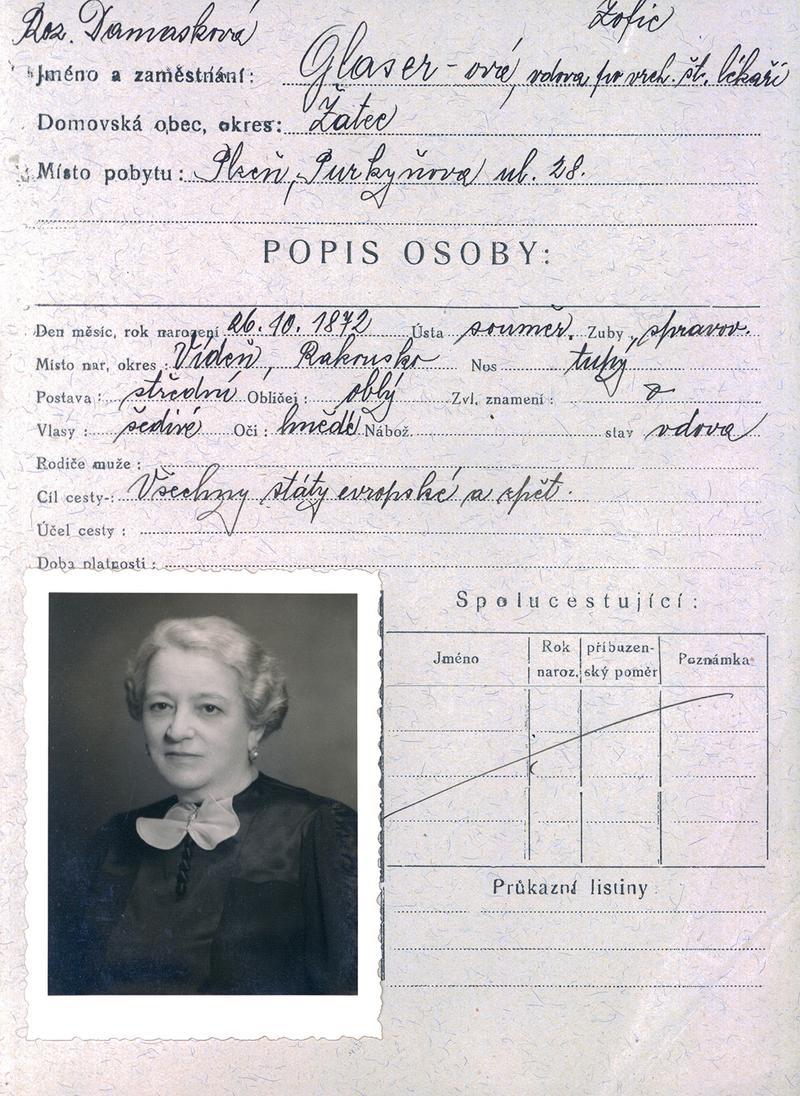 Roz. Damasková Žofie
Jméno a zaměstnání: Glaser-ová, vdova po vrch. št. lékaři
Domovská obec, okres: Žatec
Místo pobytu: Plzeň, Purkyňova ul. 28.
POPIS OSOBY:
Den měsíc, rok narození 26. 10. 1872 Ústa souměr. Zuby spravov.
Místo nar, okres: Vídeň, Rakousko Nos tupý
Postava: střední Obličej: oblý Zvl, znamení:
Vlasy: šedivé Oči: hnědé Nábož. stav vdova
Rodiče muže:
Cíl cesty-: Všechny státy evropské a zpět.
Účel cesty:
Doba platnosti:
Spolucestující:
Jméno Rok naroz, příbuzen-ský poměr Poznámka
Průkazní listiny